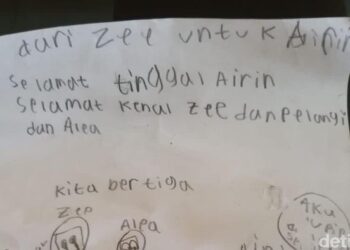 dari Zee untuk Airin
Selamat tinggal Airin
Selamat kenal Zee dan pelangi
dan Alea
kita bertiga
Zee
Alea
Aku